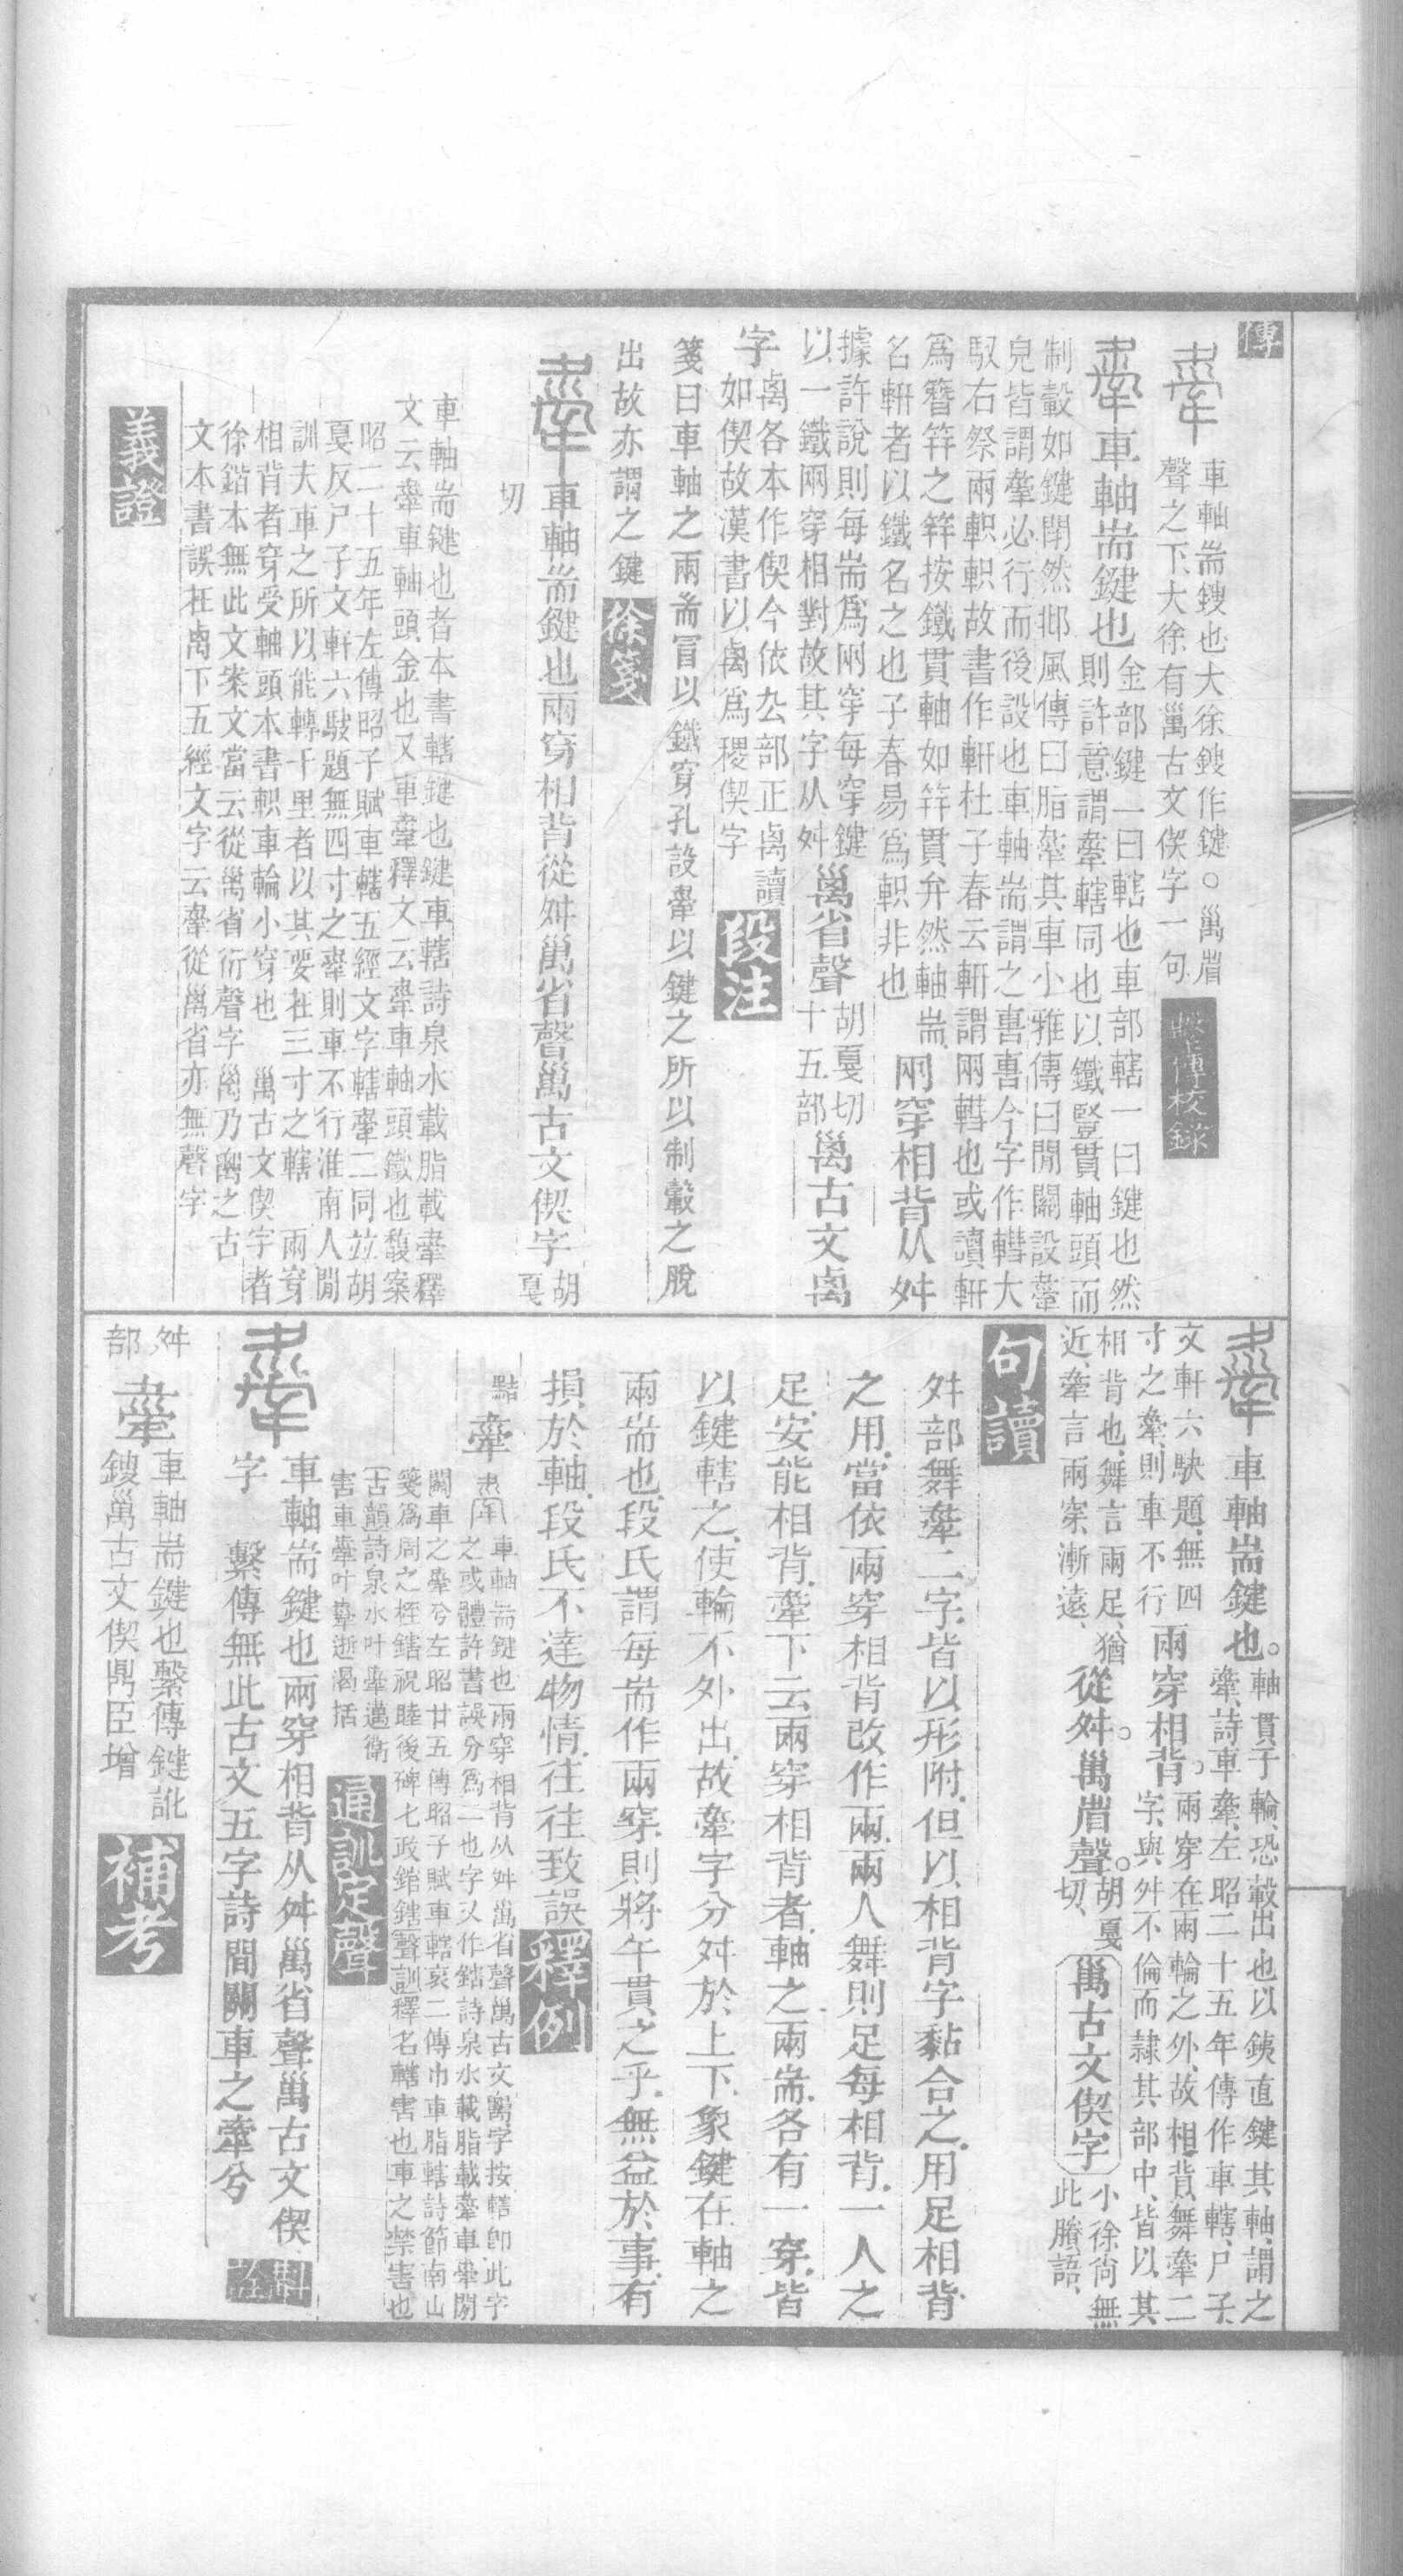 傳
車軸耑鎪也大徐鎪作鍵○𥝢省
聲之下大徐有𥝢古文偰字一句
繫傳校錄
舝車軸耑鍵也
金部鍵一曰轄也車部轄一曰鍵也然
則許意謂舝轄同也以鐵豎貫軸頭而
制轂如鍵閉然邶風傳曰脂舝其車小雅傳曰閒關設舝
皃皆謂舝必行而後設也車軸耑謂之軎軎今字作轊大
馭右祭兩軹軹故書作軒杜子春云軒謂兩轊也或讀軒
爲簪笄之笄按鐵貫軸如笄貫弁然軸耑
名軒者以鐵名之也子春易爲軹非也
兩穿相背从舛
據許說則每耑爲兩穿每穿鍵
以一鐵兩穿相對故其字从舛
𥝢省聲
胡戛切
十五部
𥝢古文禼
字
禼各本作偰今依厹部正禼讀
如偰故漢書以禼爲稷偰字
段注
箋曰車軸之兩耑冒以鐵穿孔設舝以鍵之所以制轂之脫
出故亦謂之鍵
徐箋
舝車軸耑鍵也兩穿相背從舛𥝢省聲𥝢古文偰字
胡戛
切
車軸耑鍵也者本書轄鍵也鍵車轄詩泉水載脂載舝釋
文云舝車軸頭金也又車舝釋文云舝車軸頭鐵也馥案
昭二十五年左傳昭子賦車轄五經文字轄舝二同竝胡
戛反尸子文軒六駃題無四寸之舝則車不行淮南人閒
訓夫車之所以能轉千里者以其要在三寸之轄 兩穿
相背者穿受軸頭本書軹車輪小穿也 𥝢古文偰字者
徐鍇本無此文案文當云從𥝢省衍聲字𥝢乃禼之古
文本書誤在禼下五經文字云舝從𥝢省亦無聲字
義證
舝車軸耑鍵也。
軸貫于輪、恐轂出也以鐵直鍵其軸、謂之
舝、詩車舝、左昭二十五年傳作車轄、尸子、
文軒六駃題、無四
寸之舝、則車不行
兩穿相背。
兩穿在兩輪之外、故相背、舞舝二
字、與舛不倫而隸其部中、皆以其
相背也、舞言兩足、猶
近、舝言兩穿、漸遠、
從舛。𥝢省聲。
胡戛
切、
𥝢古文偰字
小徐尚無
此賸語、
句讀
舛部舞舝二字、皆以形附、但以相背字黏合之、用足相背
之用、當依兩穿相背改作兩、兩人舞則足每相背、一人之
足、安能相背、舝下云兩穿相背者、軸之兩耑、各有一穿、皆
以鍵轄之、使輪不外出、故舝字分舛於上下、象鍵在軸之
兩耑也、段氏謂每耑作兩穿、則將午貫之乎、無益於事、有
損於軸、段氏不達物情、往往致誤
釋例
舝
車軸耑鍵也兩穿相背从舛𥝢省聲𥝢古文禼字按轄卽此字
之或體許書誤分爲二也字又作鎋詩泉水載脂載舝車舝閒
關車之舝兮左昭廿五傳昭子賦車轄哀二傳巾車脂轄詩節南山
箋爲周之桎鎋祝睦後碑七政錧鎋聲訓釋名轄害也車之禁害也
古韻詩泉水叶舝邁衞
害車舝叶舝逝渴括
通訓定聲
車軸耑鍵也兩穿相背从舛𥝢省聲𥝢古文偰
字 繫傳無此古文五字詩間關車之舝兮
斠詮
舛部
舝
車軸耑鍵也繫傳鍵訛
鎪𥝢古文偰鼎臣增
補考